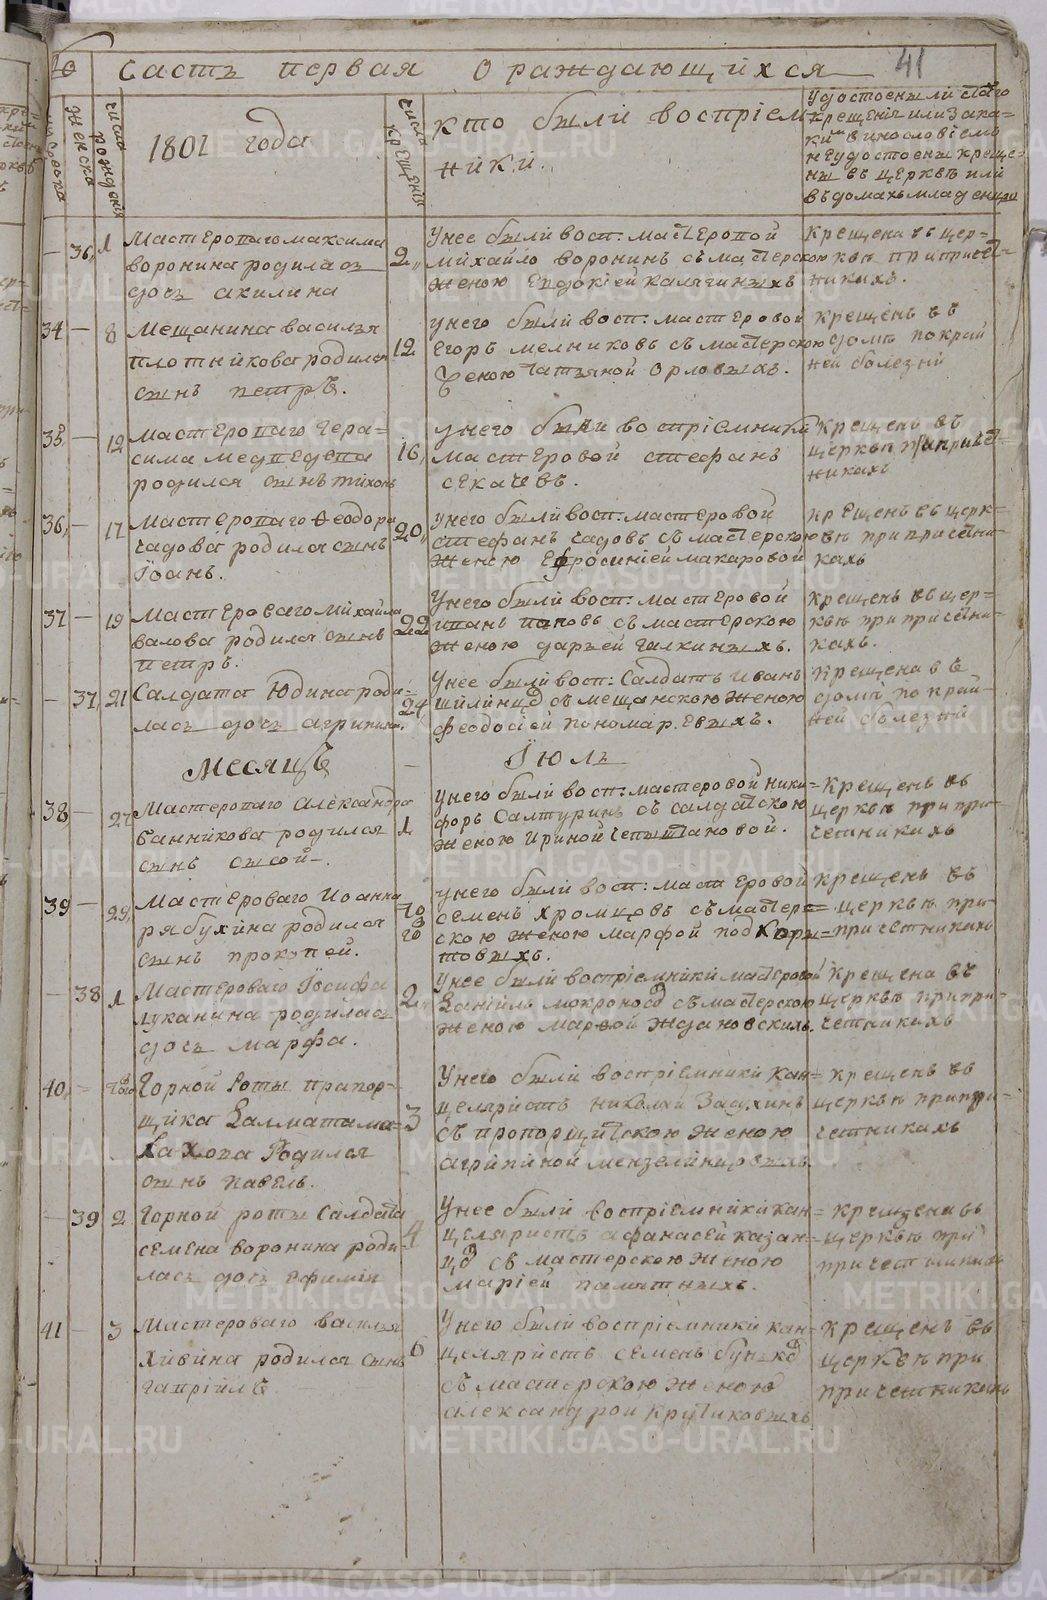 Часть первая О раждающихся 41
мужеска
женска
числа рожденiя
1801 года
числа крещенiя
кто были воспрiем-
ники.
Удостоены ли с͠таго
крещенiя или за
кимъ инословiемъ
неудостоены креще-
ны въ церквѣ или
въ домахъ младенцы
36, 1 Мастероваго максима
воронина родилась
дочь акилина
2,, У нее были восп: мастеровой
михайло воронинъ съ мастерскою
женою Евдокiей калягиныхъ
крещена въ цер-
квѣ при причет-
никахъ.
34 8 Мещанина василья
плотникова родился
сынъ петръ.
12 у него были восп: мастеровой
Егоръ мелниковъ съ мастерскою
женою татьяной орловыхъ.
крещенъ въ
домѣ по край
ней болезни
35 12 мастероваго гера-
сима медведева
родился сынъ тихонъ
16, у него были вострiемники
мастеровой стефанъ
секачевъ.
крещенъ въ
церквѣ при причет-
никахъ
36, 17 Мастероваго Ѳеодора
чадова родился сынъ
Iоанъ.
20,, у него были восп: мастеровой
стефанъ чадовъ съ мастерскою
женою Ефросинiей макаровой
крещенъ въ церк-
вѣ при причетни-
кахъ
37 19 Мастероваго михайла
валова родился сынъ
петръ.
22 У него были восп: мастеровой
иванъ пановъ съ мастерскою
женою дарьей галкиныхъ.
крещенъ въ цер-
квѣ при причетни-
кахъ.
37, 21 Салдата Юдина роди-
лась дочь агрипина.
24 У нее были восп: Салдатъ иванъ
съ мещанскою женою
феодосiей пономаревыхъ.
крещена въ
домѣ по край-
ней болезни
Месяцъ Iюль
38 27 Мастероваго александра
банникова родился
сынъ сысой.
1 У него были восп: мастеровой ники-
форъ Салтуринъ съ салдатскою
женою ириной
крещенъ въ
церквѣ при при-
четникахъ
39 29, Мастероваго Иоанна
рябухина родился
сынъ прокопей.
у него были восп: мастеровой
семенъ хромцовъ съ мастер-
скою женою марфой подкоры-
товыхъ.
крещенъ въ
церквѣ при
причетникахъ
38 1 Мастероваго Iосифа
луканина родилась
дочь марфа.
2 У нее были воспрiемники мастеровой
данiилъ мокроносовъ съ мастерскою
женою марфой ждановскихъ.
Крещена въ
церквѣ при при-
четникахъ
40, Горной роты прапор-
щика
родился
сынъ павелъ.
3 У него были воспрiемники кан-
целяристъ николай Засухинъ
съ пропорщитскою женою
агрипiной
крещенъ въ
церквѣ при при-
четникахъ
39 2 Горной роты Салдата
семена воронина роди-
лась дочь ефимiя
4 У нее были воспрiемники кан-
целяристъ афанасей казан-
цовъ съ мастерскою женою
марiей палатныхъ.
крещена въ
церквѣ при
причетникахъ
41 3 Мастероваго василья
хивина родился сынъ
гаврiилъ
6 У него были воспрiемники кан-
целяристъ семенъ
съ мастерскою женою
александрой крутиковыхъ
крещенъ въ
церквѣ при
причетникахъ
METRIKI.GASO-URAL.RU